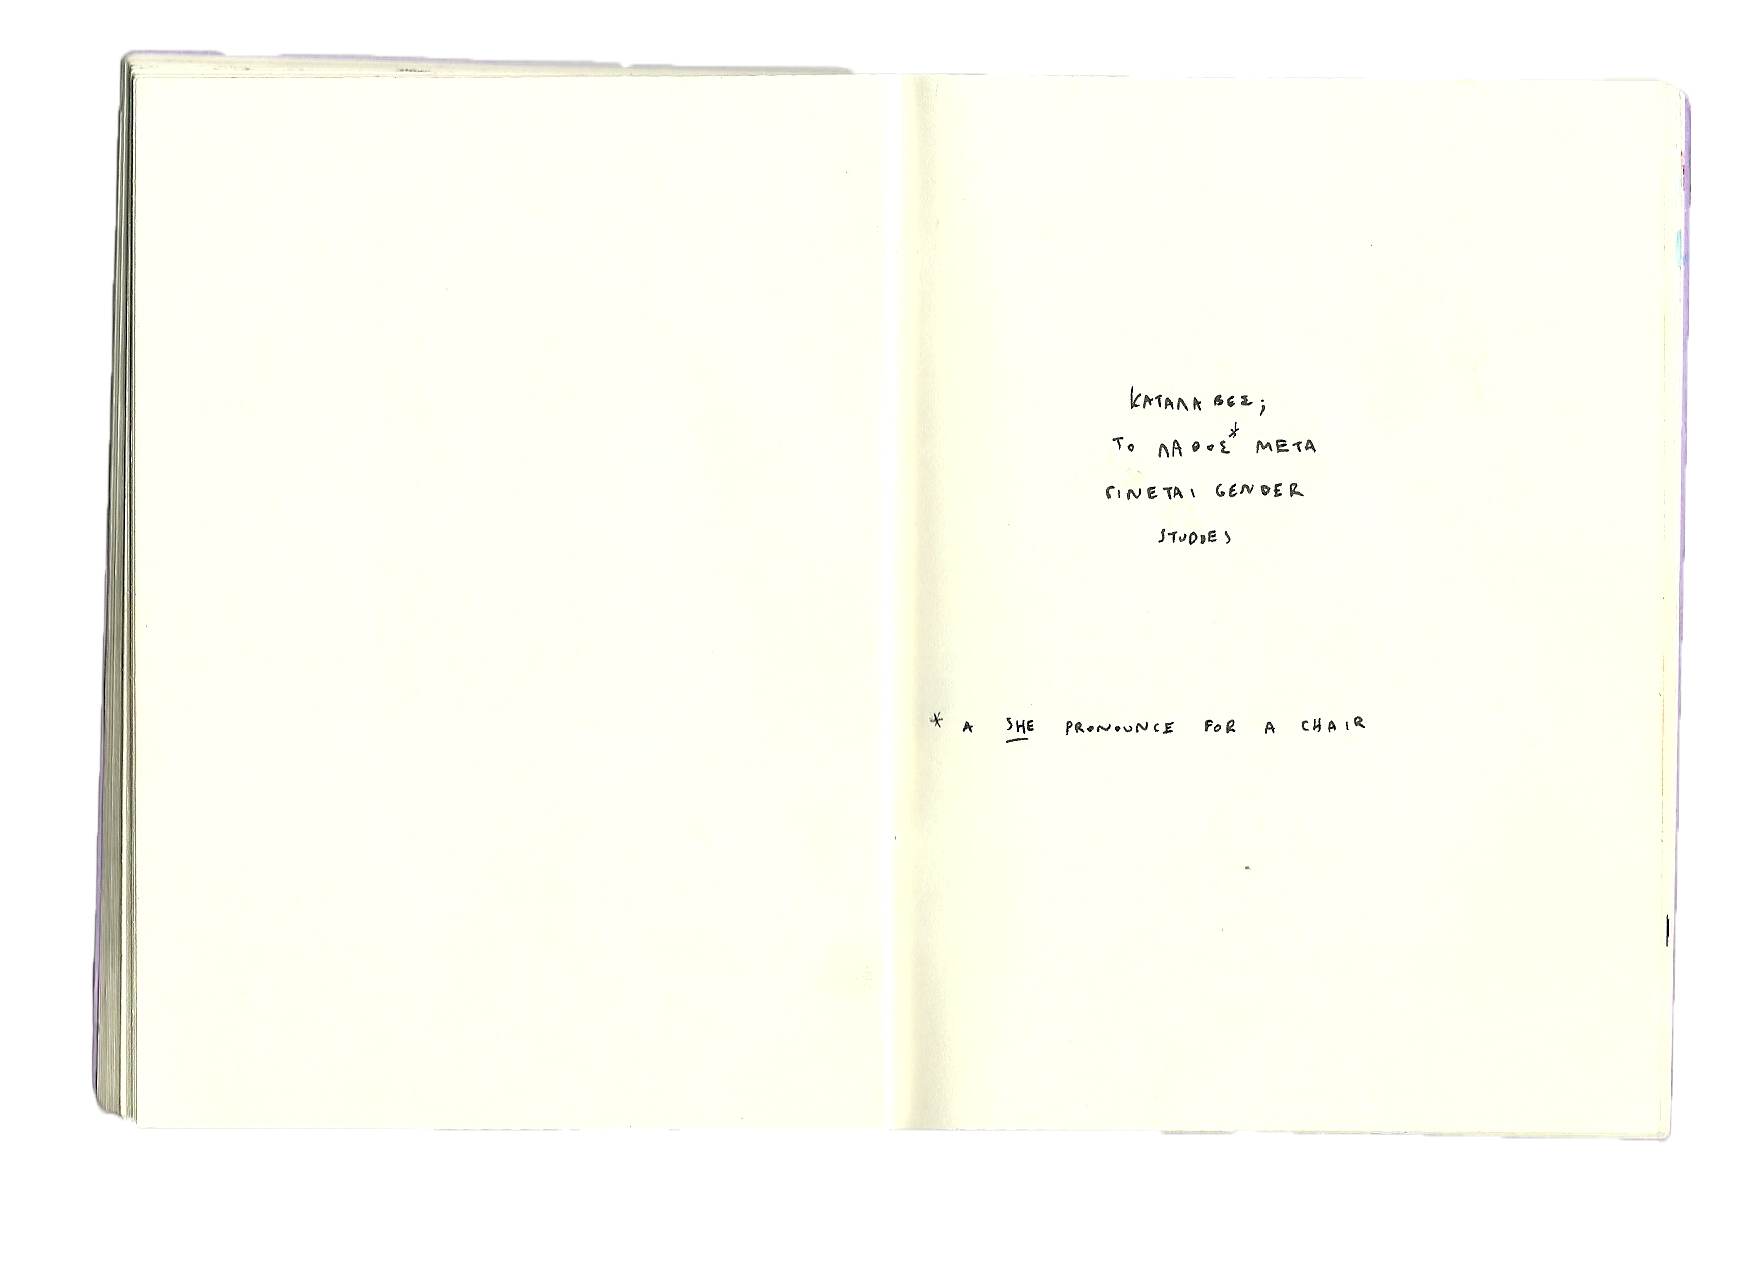 ΚΑΤΑΛΑΒΕΣ;
ΤΟ ΛΑΘΟΣ* ΜΕΤΑ
ΓΙΝΕΤΑΙ GENDER
STUDIES
* A SHE PRONOUNCE FOR A CHAIR